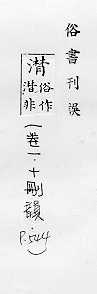 俗書刊誤
潸俗作
澘非
(卷一．十刪韻
P.544)